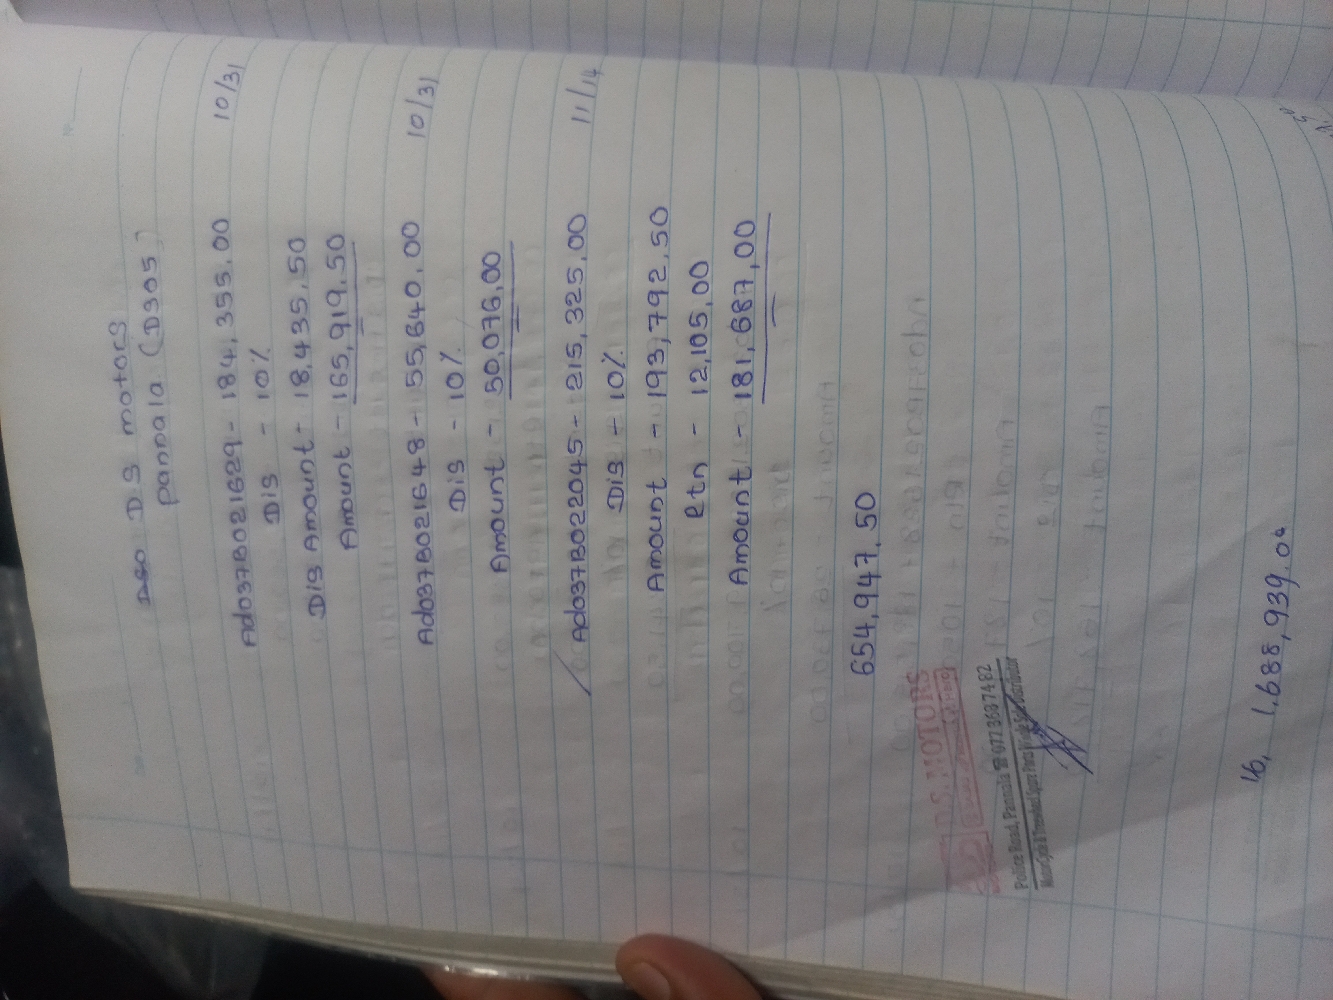 D.S motors
pannala (D305)
Ad037B021629 - 184,355.00 10/31
Dis - 10%
Dis Amount - 18,435.50
Amount - 165,919.50
Ad037B021648 - 55,640.00 10/31
Dis - 10%
Amount - 50,076.00
Ad037B022045 - 215,325.00 11/14
Dis - 10%
Amount - 193,792.50
Rtn - 12,105.00
Amount - 181,687.00
654,947.50
D.S. MOTORS
Police Road, Pannala ☎ 077 3687482
16, 1,688,939.06